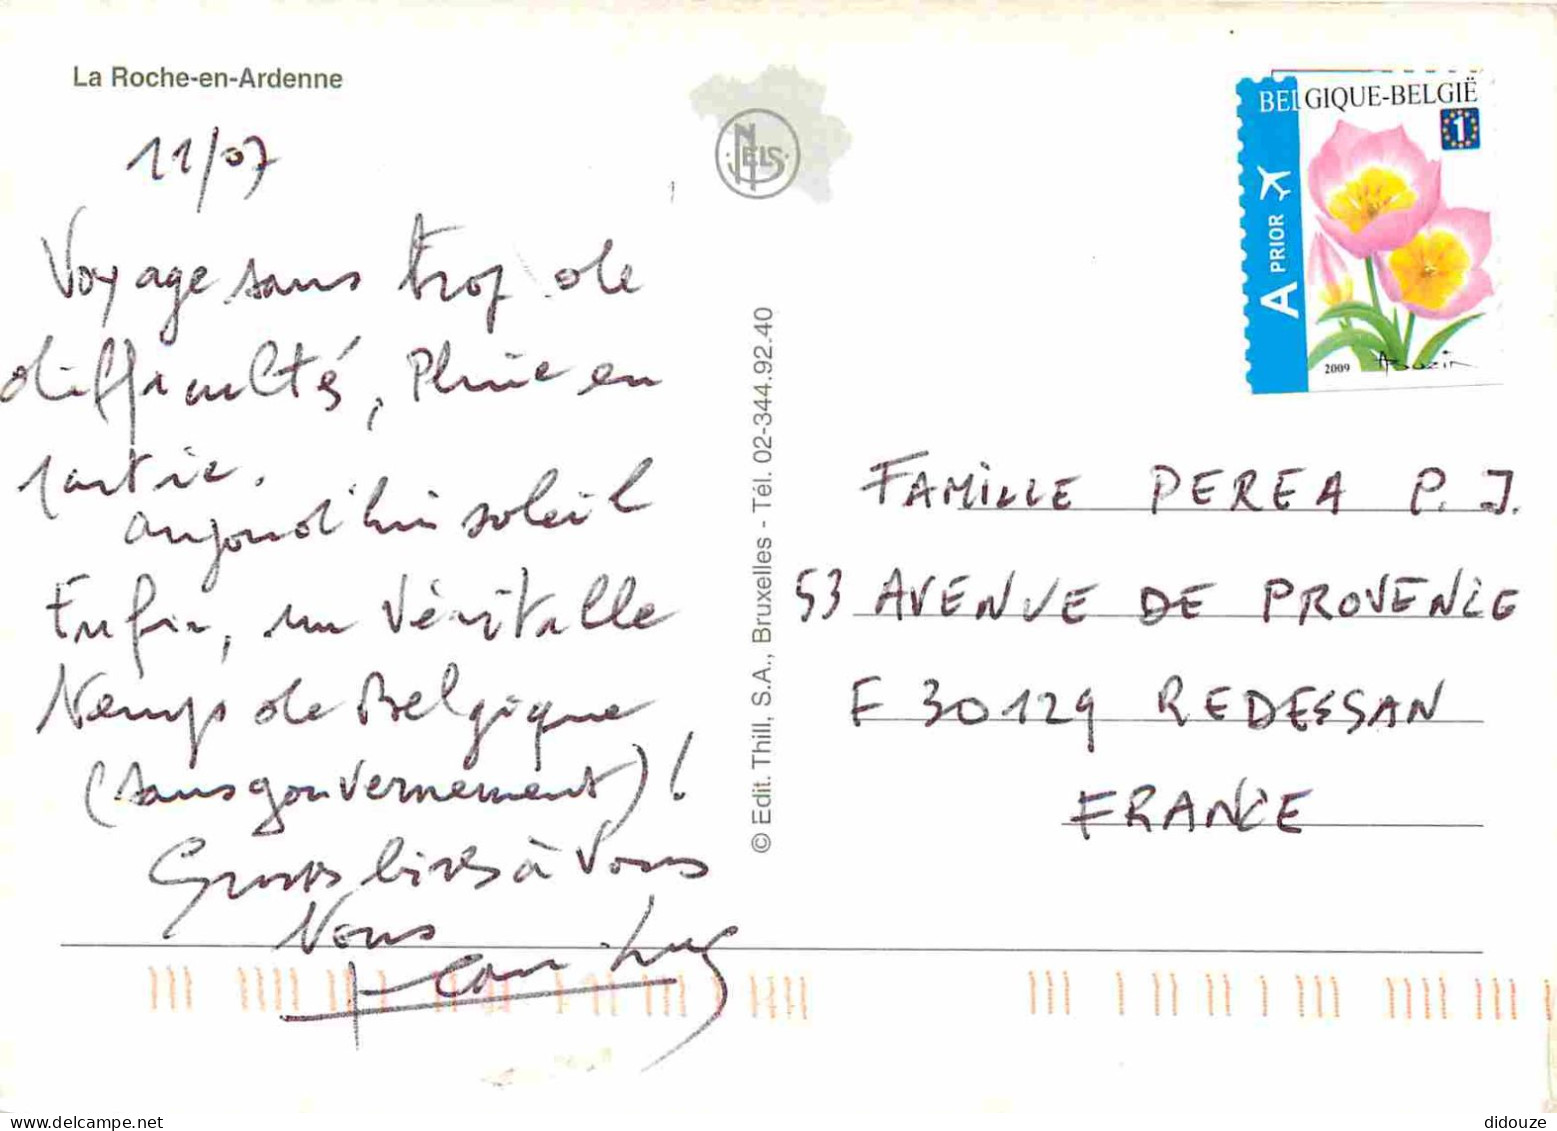 La Roche-en-Ardenne
11/07
Voyage sans trop de
difficultés, Pluie en
partie.
aujourd'hui soleil
Enfin, un véritable
temps de Belgique
(sans gouvernement) !
Grosses bises à vous
Nous
Jean-Luc
NELS
© Edit. Thill, S.A., Bruxelles - Tél. 02-344.92.40
BELGIQUE-BELGIË
1
A PRIOR
2009 A Buzin
FAMILLE PEREA P. J.
53 AVENUE DE PROVENCE
F 30129 REDESSAN
FRANCE
didouze